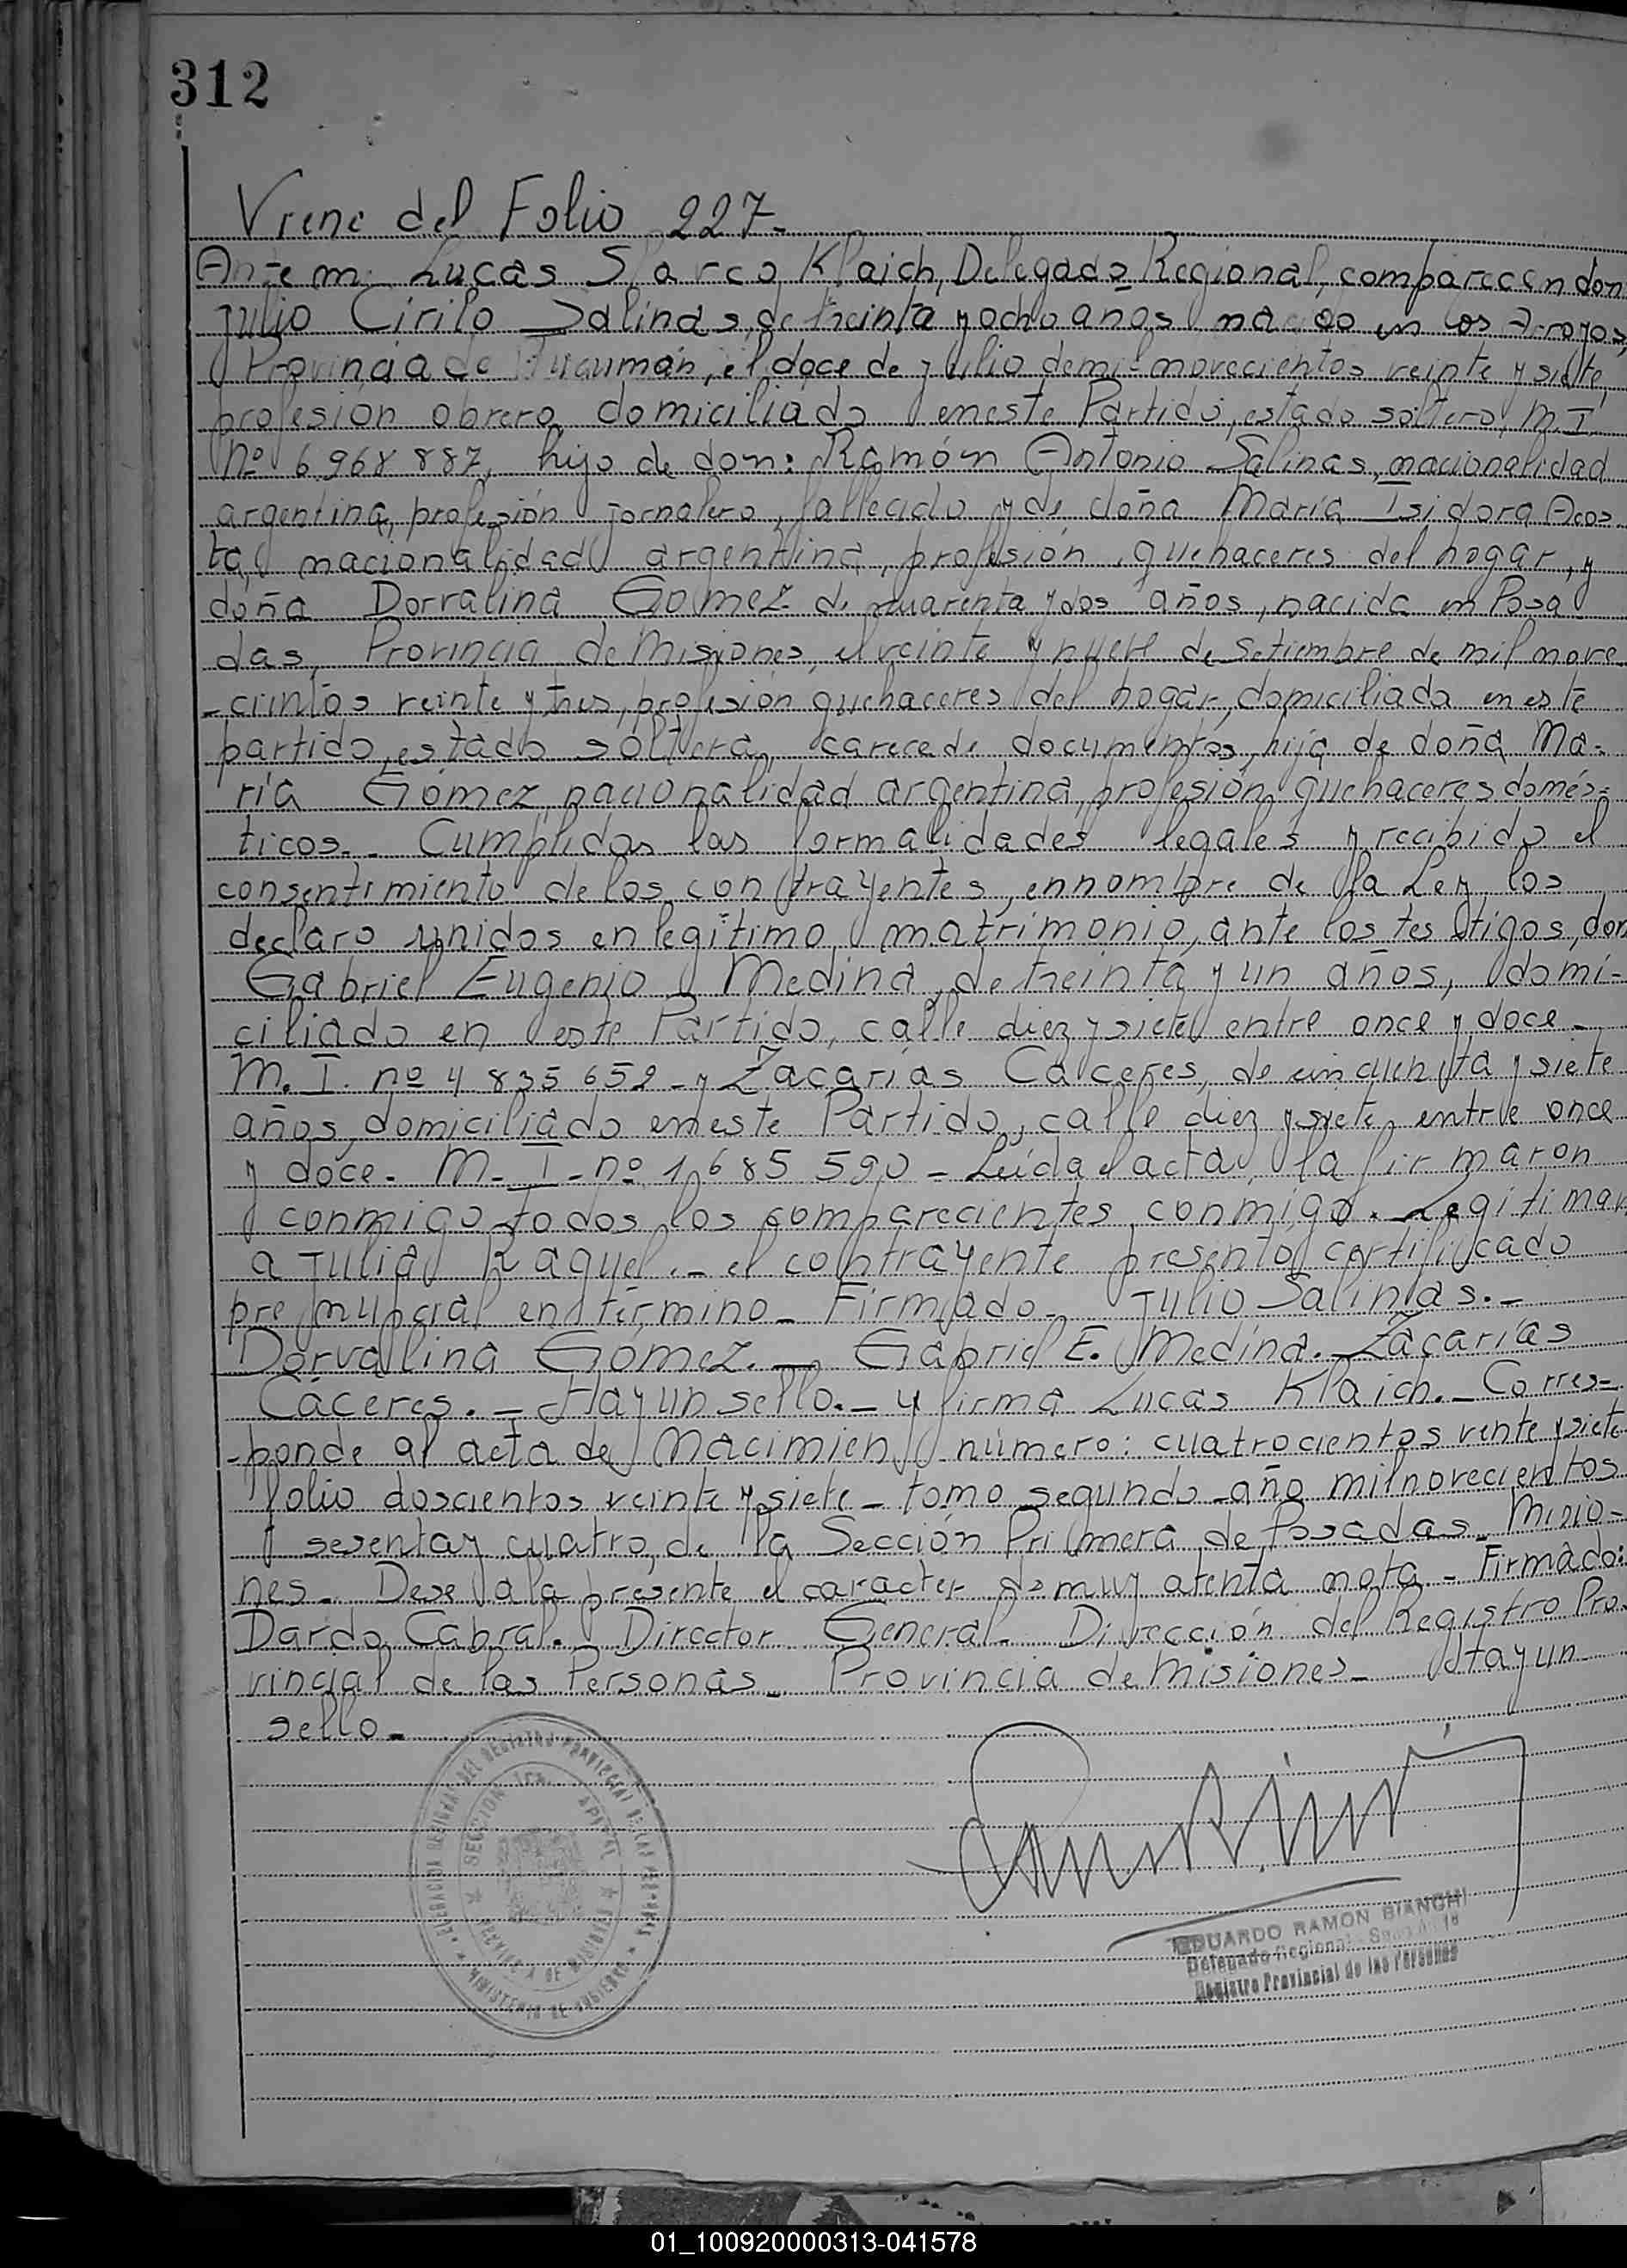 312
Viene del Folio 227-
Ante mi Lucas Klaich, Delegado Regional, comparecen don
Julio Cirilo Salinas, de treinta y ocho años nacido en los Arroyos,
Provincia de Tucumán, el doce de julio de mil novecientos veinte y siete,
profesión obrero domiciliado en este Partido, estado soltero, M.I.
nº 6.968.887, hijo de don: Ramón Antonio Salinas, nacionalidad
argentina, profesión jornalero, fallecido y de doña María Isidora Acos
ta, nacionalidad argentina, profesión, quehaceres del hogar, y
doña Dorvalina Gomez de cuarenta y dos años, nacida en Posa
das, Provincia de Misiones, el veinte y nueve de Setiembre de mil nove
-cientos veinte y tres, profesión quehaceres del hogar, domiciliada en este
partido, estado soltera, carece de documentos, hija de doña Ma-
ría Gómez, nacionalidad argentina, profesión quehaceres domés-
ticos.- Cumplidas las formalidades legales y recibido el
consentimiento de los contrayentes, en nombre de la Ley los
declaro unidos en legítimo matrimonio, ante los testigos, don
Gabriel Eugenio Medina, de treinta y un años, domi-
ciliado en este Partido, calle diez y siete entre once y doce-
M. I. nº 4 835 652 - y Zacarías Cáceres, de cincuenta y siete
años, domiciliado en este Partido, calle diez y siete entre once
y doce- M-I-nº 1.685 590 - Leída el acta, la firmaron
conmigo todos los comparecientes conmigo. Legitiman
a Julia Raquel.- el contrayente presentó certificado
pre nupcial en término - Firmado - Julio Salinas.-
Dorvalina Gómez.- Gabriel E. Medina. Zacarías
Cáceres.- Hay un sello.- y firma Lucas Klaich.- Corres-
-ponde al acta de Nacimiento número: cuatrocientos veinte y siete
folio doscientos veinte y siete - tomo segundo - año mil novecientos
sesenta y cuatro, de la Sección Primera de Posadas - Misio-
nes - Dese a la presente el caracter de muy atenta nota - Firmado:
Dardo Cabral. Director General - Dirección del Registro Pro-
vincial de las Personas - Provincia de Misiones - Hay un
sello -
EDUARDO RAMON BIANCHI
Delegado Regional
Registro Provincial de las Personas
01_100920000313-041578